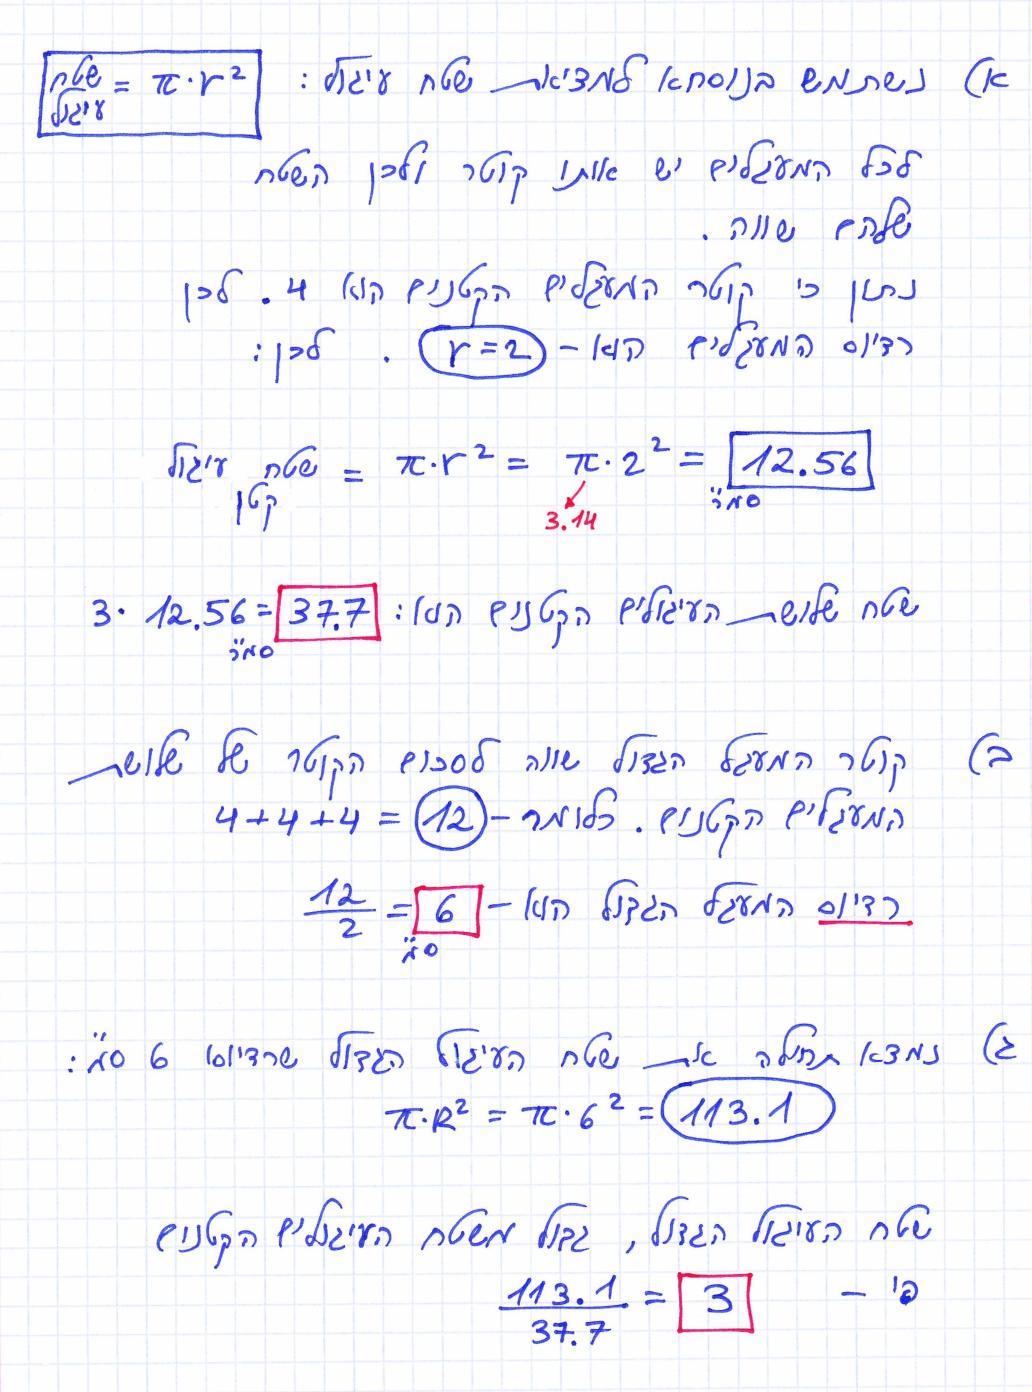 א) נשתמש בנוסחא למציאת שטח עיגול : שטח עיגול = π·r²
לכל המעגלים יש אותו קוטר ולכן השטח
שלהם שווה .
נתון כי קוטר המעגלים הקטנים הוא 4 . לכן
רדיוס המעגלים הוא - r=2 . לכן :
שטח עיגול קטן = π·r² = π·2² = 12.56
3.14
סמ"ר
שטח שלושת העיגולים הקטנים הוא : 3·12.56=37.7
סמ"ר
ב) קוטר המעגל הגדול שווה לסכום הקוטר של שלושת
המעגלים הקטנים . כלומר - 4+4+4 = 12
רדיוס המעגל הגדול הוא - 12/2 = 6
ס"מ
ג) נמצא תחילה את שטח העיגול הגדול שרדיוסו 6 ס"מ :
π·R² = π·6² = 113.1
שטח העיגול הגדול, גדול משטח העיגולים הקטנים
פי - 113.1/37.7 = 3